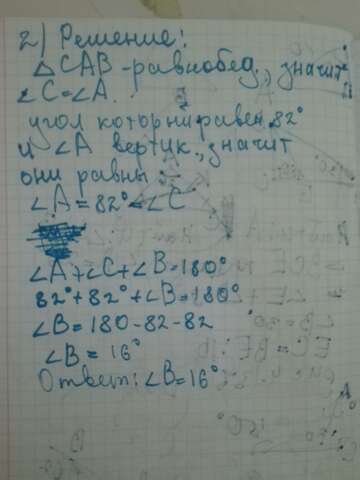 2) Решение:
△CAB - равнобед., значит
∠C=∠A.
угол который равен 82°
и ∠A вертик., значит
они равны
∠A = 82° = ∠C
∠A+∠C+∠B=180°
82°+82°+∠B=180°
∠B=180-82-82
∠B = 16°
Ответ: ∠B=16°